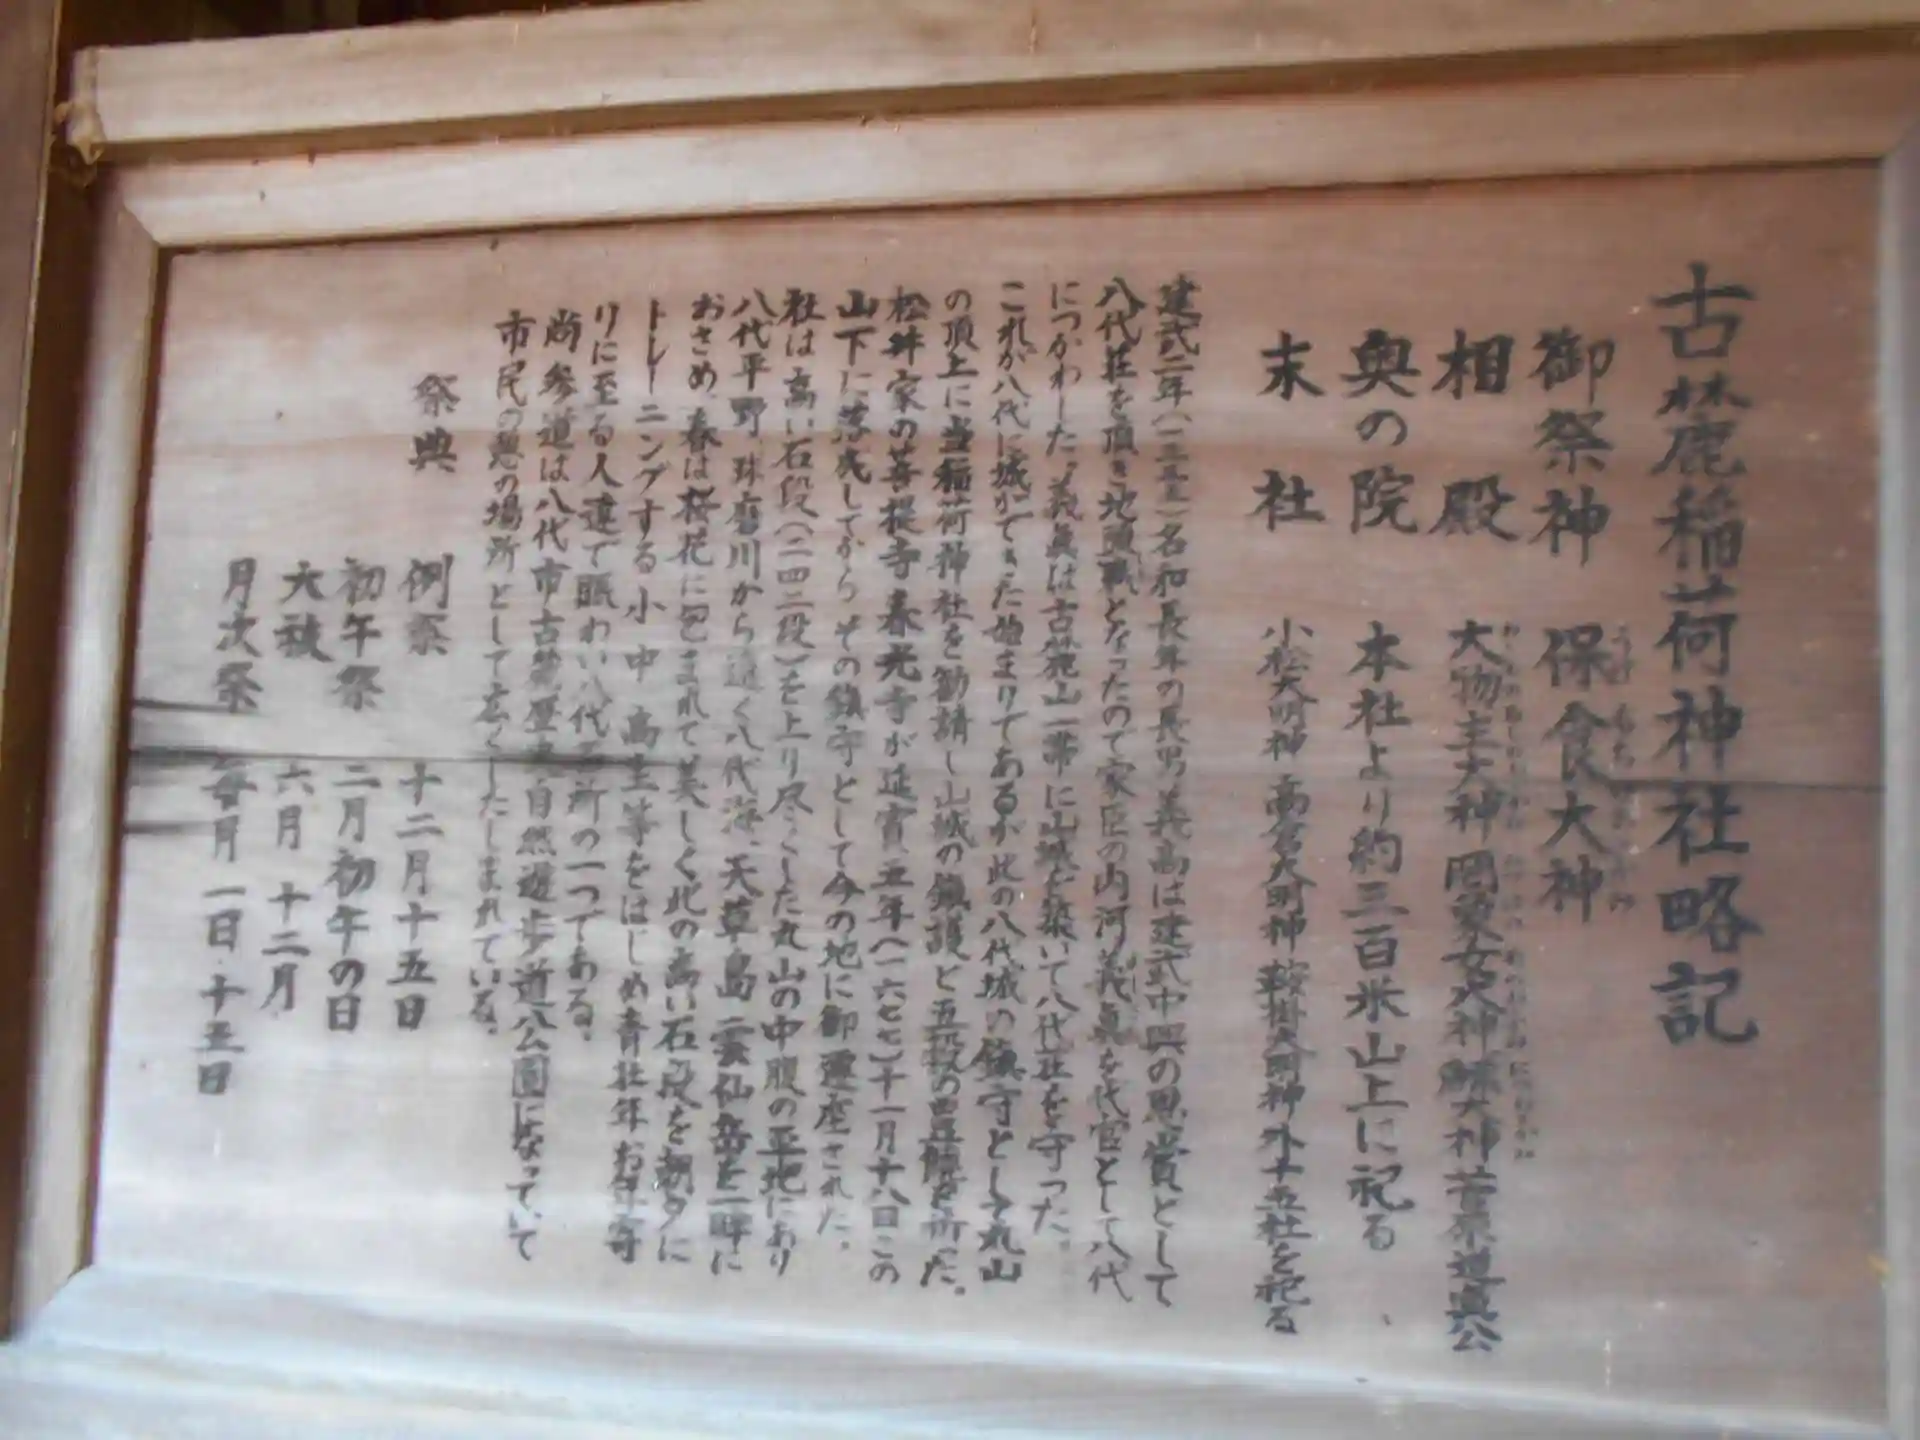 古麓稲荷神社略記
御祭神 保食大神
相殿 大物主大神 罔象女大神 大神 菅原道眞公
奥の院 本社より約三百米山上に祀る
末社 小松大明神 高倉大明神 鞍掛大明神 外十五社を祀る
建武二年(一三三五)名和長年の長男義高は建武中興の恩賞として
八代荘を頂き地頭職となったので家臣の内河義眞を代官として八代
につかわした。義眞は古麓山一帯に山城を築いて八代荘を守った。
これが八代に城ができた始まりであるが此の八代城の鎮守として丸山
の頂上に当稲荷神社を勧請し山城の鎮護と五穀の豊饒を祈った。
松井家の菩提寺春光寺が延宝五年(一六七七)十一月十八日この
山下に落成してからその鎮守として今の地に御遷座された。
社は高い石段(二四二段)を上り尽くした丸山の中腹の平地にあり
八代平野、球磨川から遠く八代海、天草島、雲仙岳を一眸に
おさめ、春は桜花に包まれて美しく此の高い石段を朝夕に
トレーニングする小 中 高生等をはじめ青壮年お年寄
りに至る人達で賑わい八代名所の一つである。
尚参道は八代市古麓歴史自然遊歩道公園になっていて
市民の憩の場所として広くしたしまれている。
祭典 例祭 十二月十五日
初午祭 二月初午の日
大祓 六月 十二月
月次祭 毎月一日・十五日